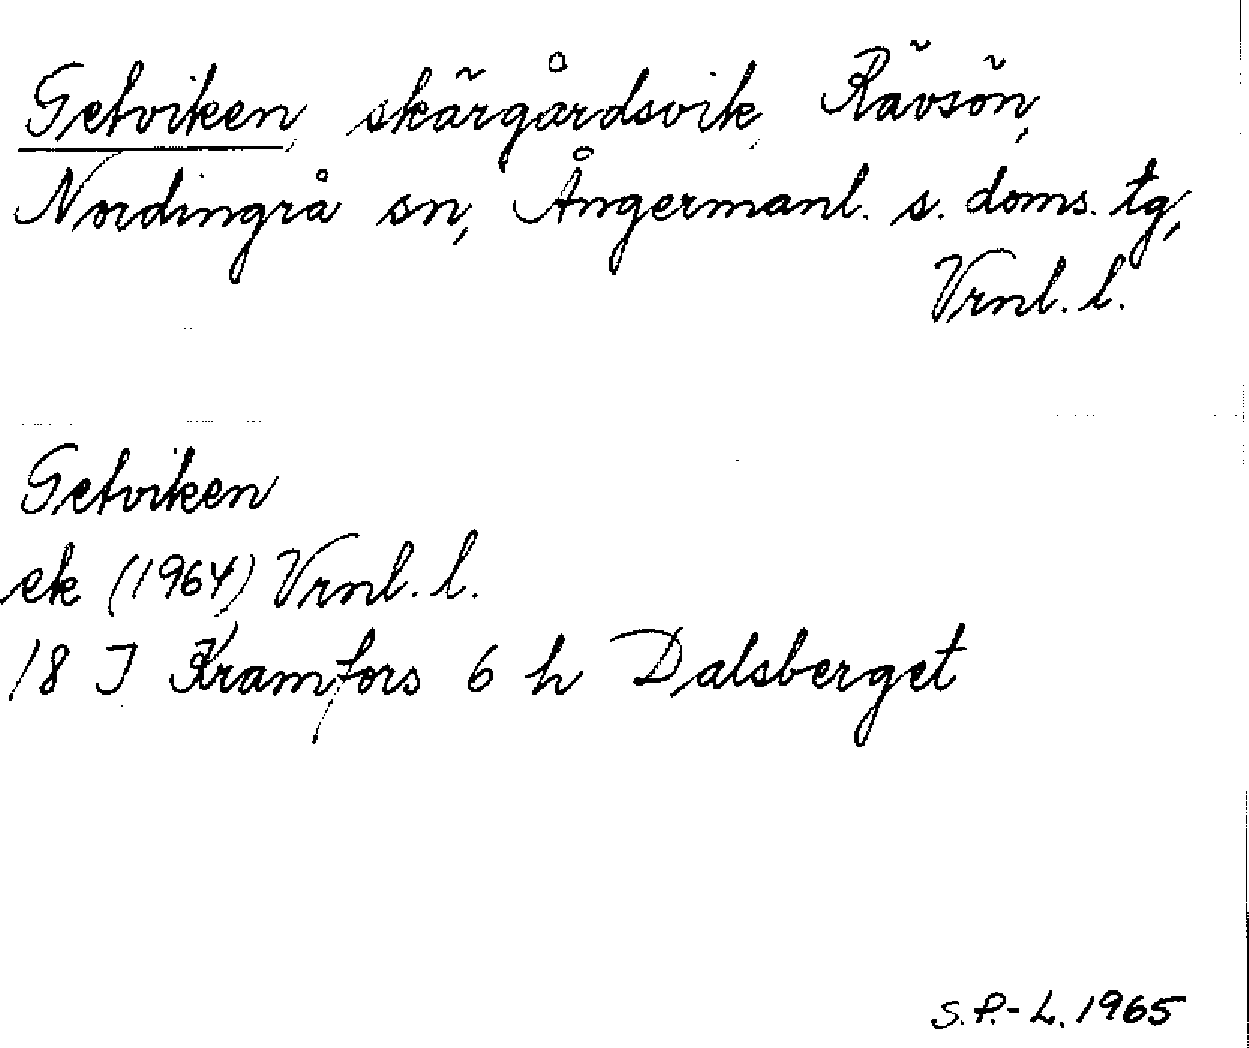 Getviken, skärgårdsvik, Rävsön,
Nordingrå sn, Ångermanl. s. doms. tg,
Vrnl. l.
Getviken
ek (1964) Vrnl. l.
18 I Kramfors 6 h Dalsberget
S.P.-L. 1965